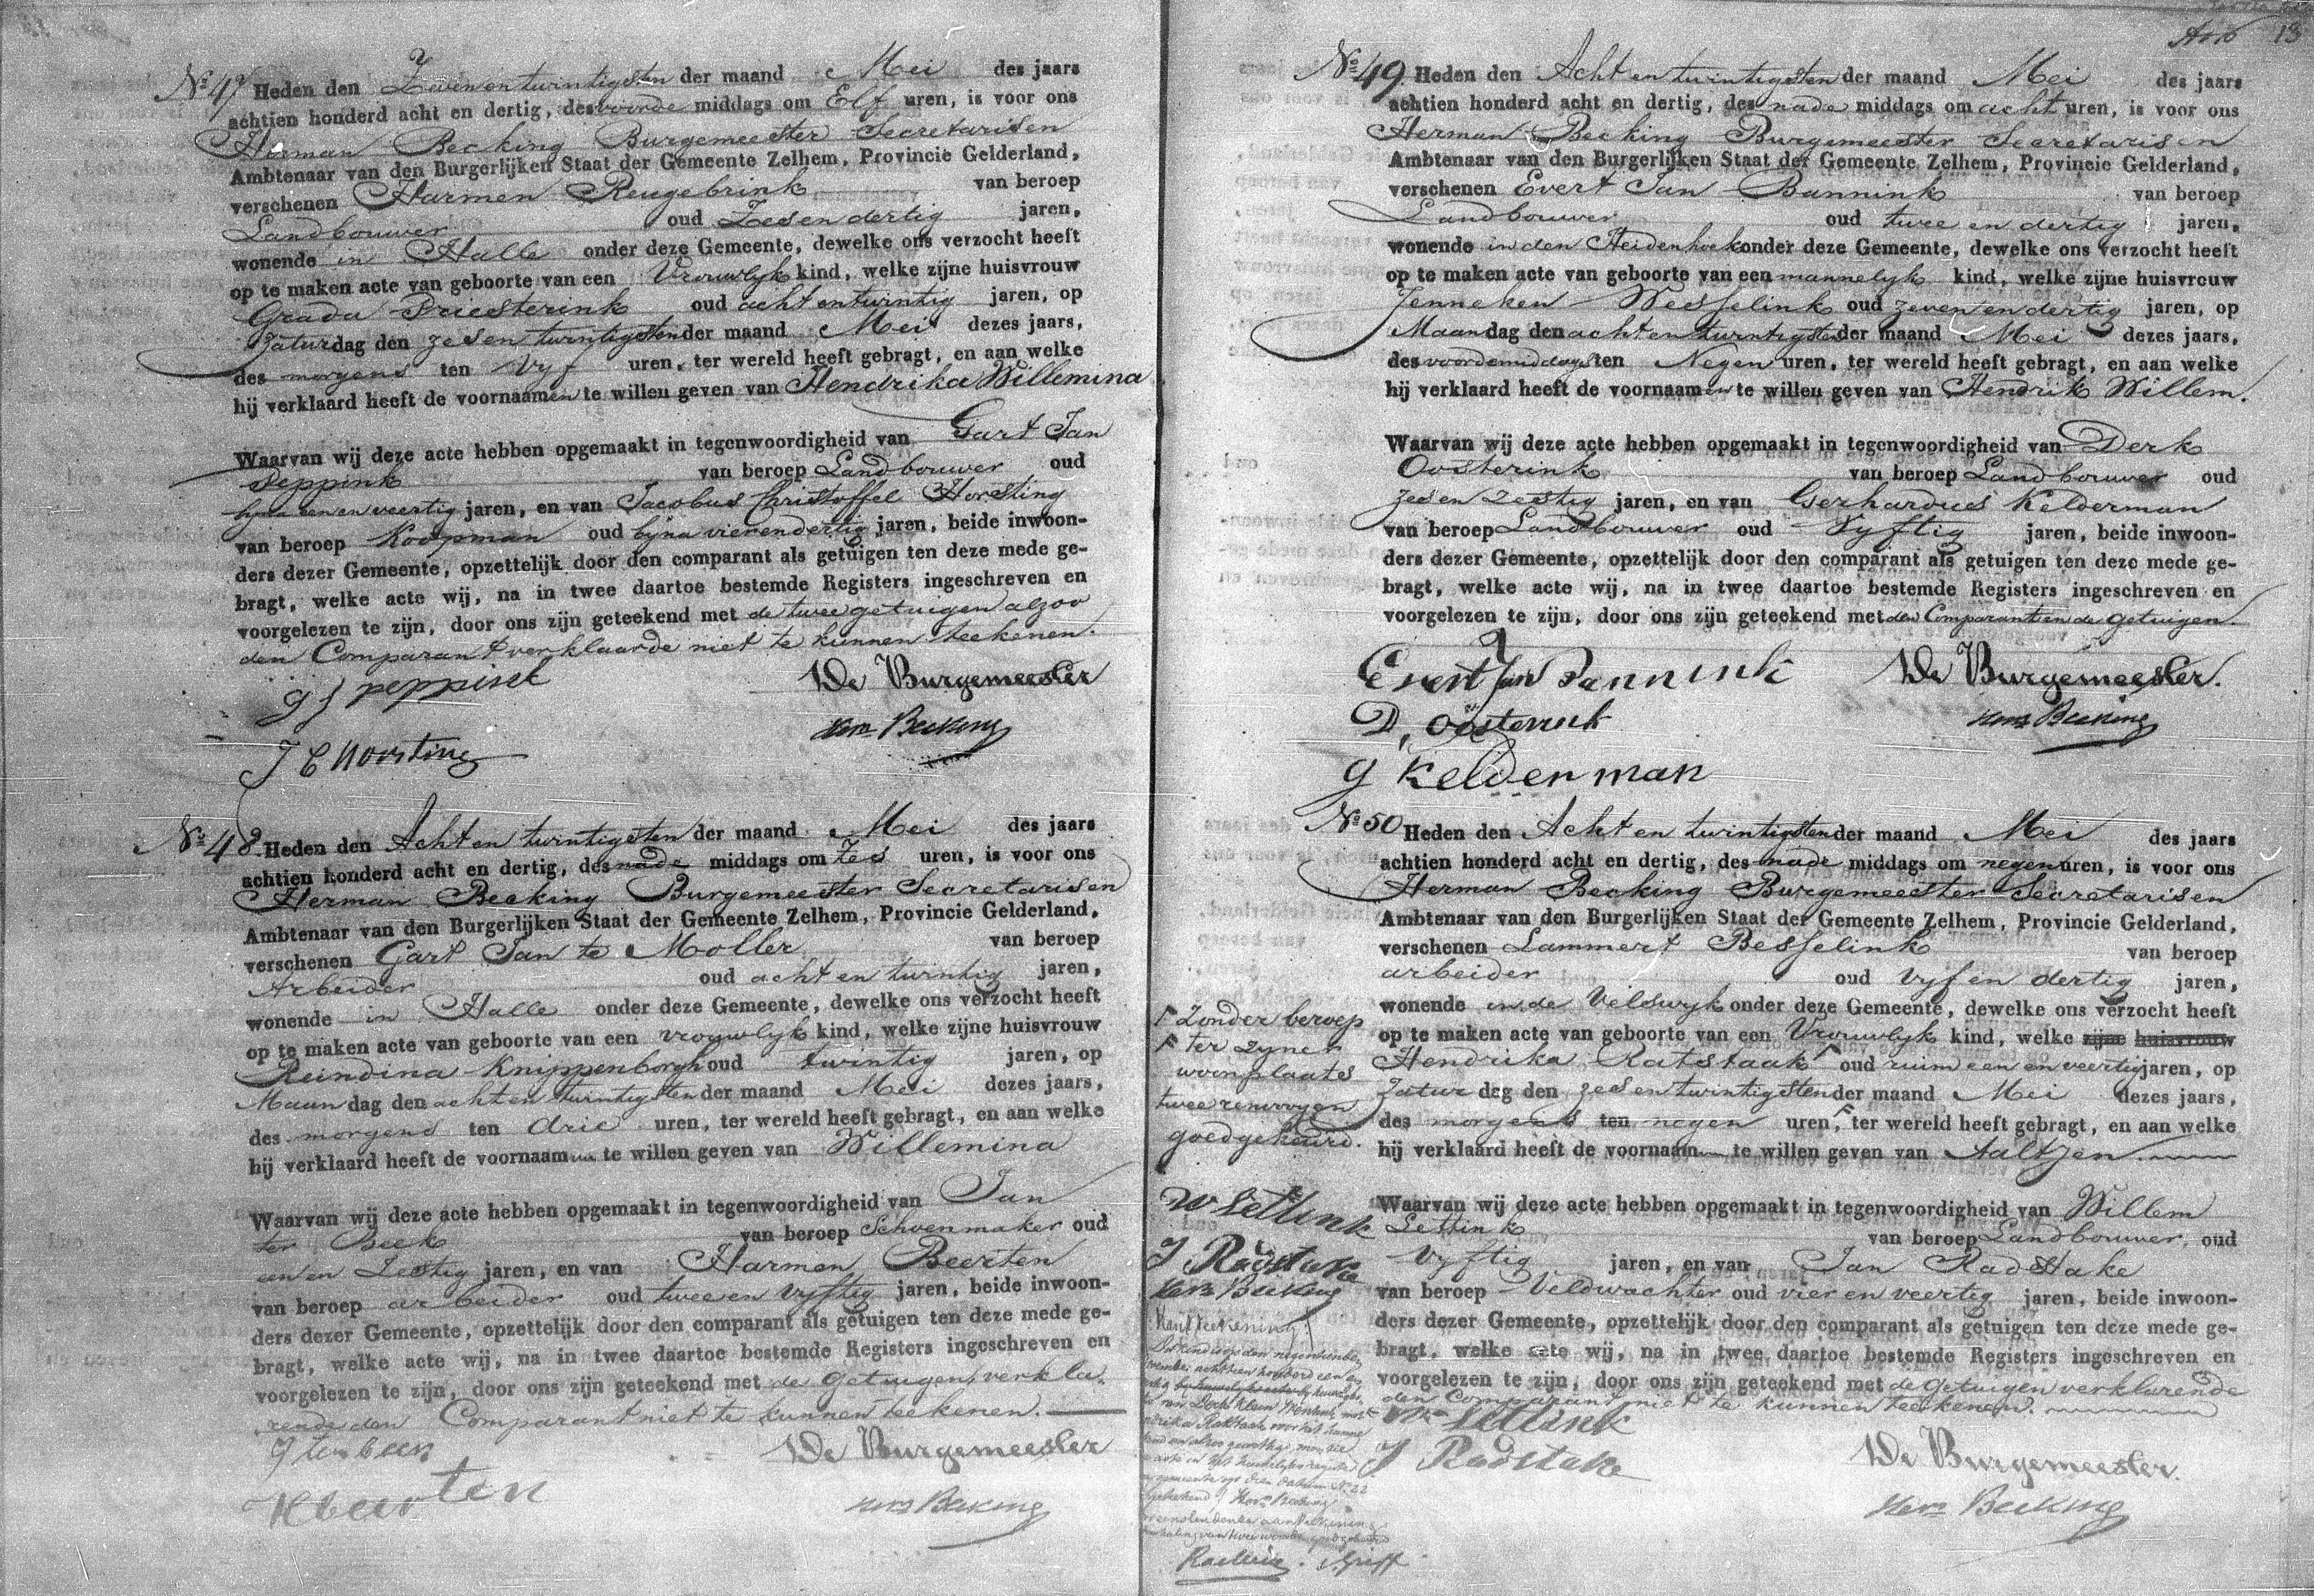 No 47 Heden den Zeven en twintigsten der maand Mei des jaars
achtien honderd acht en dertig, des voorde middags om Elf uren, is voor ons
Herman Becking Burgemeester Secretaris en
Ambtenaar van den Burgerlijken Staat der Gemeente Zelhem, Provincie Gelderland,
verschenen Harmen Reugebrink van beroep
Landbouwer oud Zes en dertig jaren,
wonende in Halle onder deze Gemeente, dewelke ons verzocht heeft
op te maken acte van geboorte van een Vrouwlyk kind, welke zijne huisvrouw
Grada Priesterink oud acht en twintig jaren, op
Zaturdag den zes en twintigsten der maand Mei dezes jaars,
des morgens ten Vyf uren, ter wereld heeft gebragt, en aan welke
hij verklaard heeft de voornaamen te willen geven van Hendrika Willemina
Waarvan wij deze acte hebben opgemaakt in tegenwoordigheid van Gart Jan
Peppink van beroep Landbouwer oud
byna een en veertig jaren, en van Jacobus Christoffel Horsting
van beroep Koopman oud byna vier en dertig jaren, beide inwoon-
ders dezer Gemeente, opzettelijk door den comparant als getuigen ten deze mede ge-
bragt, welke acte wij, na in twee daartoe bestemde Registers ingeschreven en
voorgelezen te zijn, door ons zijn geteekend met de twee getuigen alzoo
den Comparant verklaarde niet te kunnen teekenen.
G J peppink De Burgemeester
J C Horsting Herm Becking
No 48. Heden den Acht en twintigsten der maand Mei des jaars
achtien honderd acht en dertig, des nade middags om Zes uren, is voor ons
Herman Becking Burgemeester Secretaris en
Ambtenaar van den Burgerlijken Staat der Gemeente Zelhem, Provincie Gelderland,
verschenen Gart Jan te Moller van beroep
Arbeider oud acht en twintig jaren,
wonende in Halle onder deze Gemeente, dewelke ons verzocht heeft
op te maken acte van geboorte van een vrouwlyk kind, welke zijne huisvrouw
Reindina Knippenborgh oud twintig jaren, op
Maandag den acht en twintigsten der maand Mei dezes jaars,
des morgens ten drie uren, ter wereld heeft gebragt, en aan welke
hij verklaard heeft de voornaam te willen geven van Willemina
Waarvan wij deze acte hebben opgemaakt in tegenwoordigheid van Jan
ter Beek van beroep Schoenmaker oud
een en Zestig jaren, en van Harmen Beerten
van beroep arbeider oud twee en vyftig jaren, beide inwoon-
ders dezer Gemeente, opzettelijk door den comparant als getuigen ten deze mede ge-
bragt, welke acte wij, na in twee daartoe bestemde Registers ingeschreven en
voorgelezen te zijn, door ons zijn geteekend met de getuigen, verkla-
rende den Comparant niet te kunnen teekenen.
J ter beek De Burgemeester
H beerten Herm Becking
13
No 49. Heden den Acht en twintigsten der maand Mei des jaars
achtien honderd acht en dertig, des nade middags om acht uren, is voor ons
Herman Becking Burgemeester Secretaris en
Ambtenaar van den Burgerlijken Staat der Gemeente Zelhem, Provincie Gelderland,
verschenen Evert Jan Bannink van beroep
Landbouwer oud twee en dertig jaren,
wonende in den Heidenhoek onder deze Gemeente, dewelke ons verzocht heeft
op te maken acte van geboorte van een mannelyk kind, welke zijne huisvrouw
Jenneken Wesselink oud zeven en dertig jaren, op
Maandag den acht en twintigsten der maand Mei dezes jaars,
des voordemiddags ten Negen uren, ter wereld heeft gebragt, en aan welke
hij verklaard heeft de voornaamen te willen geven van Hendrik Willem.
Waarvan wij deze acte hebben opgemaakt in tegenwoordigheid van Derk
Oosterink van beroep Landbouwer oud
zes en zestig jaren, en van Gerhardus Kelderman
van beroep Landbouwer oud Vyftig jaren, beide inwoon-
ders dezer Gemeente, opzettelijk door den comparant als getuigen ten deze mede ge-
bragt, welke acte wij, na in twee daartoe bestemde Registers ingeschreven en
voorgelezen te zijn, door ons zijn geteekend met den Comparant en de getuigen.
Evert Jan Bannink De Burgemeester.
D, oosterink Herm Becking
G Kelderman
No 50 Heden den Acht en twintigsten der maand Mei des jaars
achtien honderd acht en dertig, des nade middags om negen uren, is voor ons
Herman Becking Burgemeester Secretaris en
Ambtenaar van den Burgerlijken Staat der Gemeente Zelhem, Provincie Gelderland,
verschenen Lammert Besselink van beroep
arbeider oud vyf en dertig jaren,
wonende in de Veldwyk onder deze Gemeente, dewelke ons verzocht heeft
op te maken acte van geboorte van een Vrouwlyk kind, welke zijne huisvrouw
Hendrika Ratstaak oud ruim een en veertig jaren, op
Zaturdag den zes en twintigsten der maand Mei dezes jaars,
des morgens ten negen uren, ter wereld heeft gebragt, en aan welke
hij verklaard heeft de voornaam te willen geven van Aaltjen.
Waarvan wij deze acte hebben opgemaakt in tegenwoordigheid van Willem
Lettink van beroep Landbouwer, oud
Vyftig jaren, en van Jan Radstake
van beroep Veldwachter oud vier en veertig jaren, beide inwoon-
ders dezer Gemeente, opzettelijk door den comparant als getuigen ten deze mede ge-
bragt, welke acte wij, na in twee daartoe bestemde Registers ingeschreven en
voorgelezen te zijn, door ons zijn geteekend met de getuigen verklarende
den Comparant niet te kunnen teekenen.
Wm Lettink
J Radstake De Burgemeester.
Herm Becking
Zonder beroep
ter zyner
woonplaats
twee renvooyen
goedgekeurd.
W Lettink
J Radstake
Herm Becking
Kantteekening